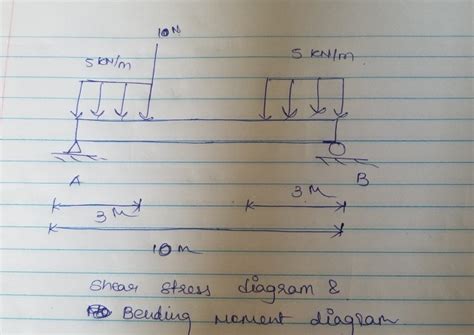 10N
5 KN/m
5 KN/m
A
B
3 M
3 M
10 m
Shear Stress diagram &
Bending Moment diagram